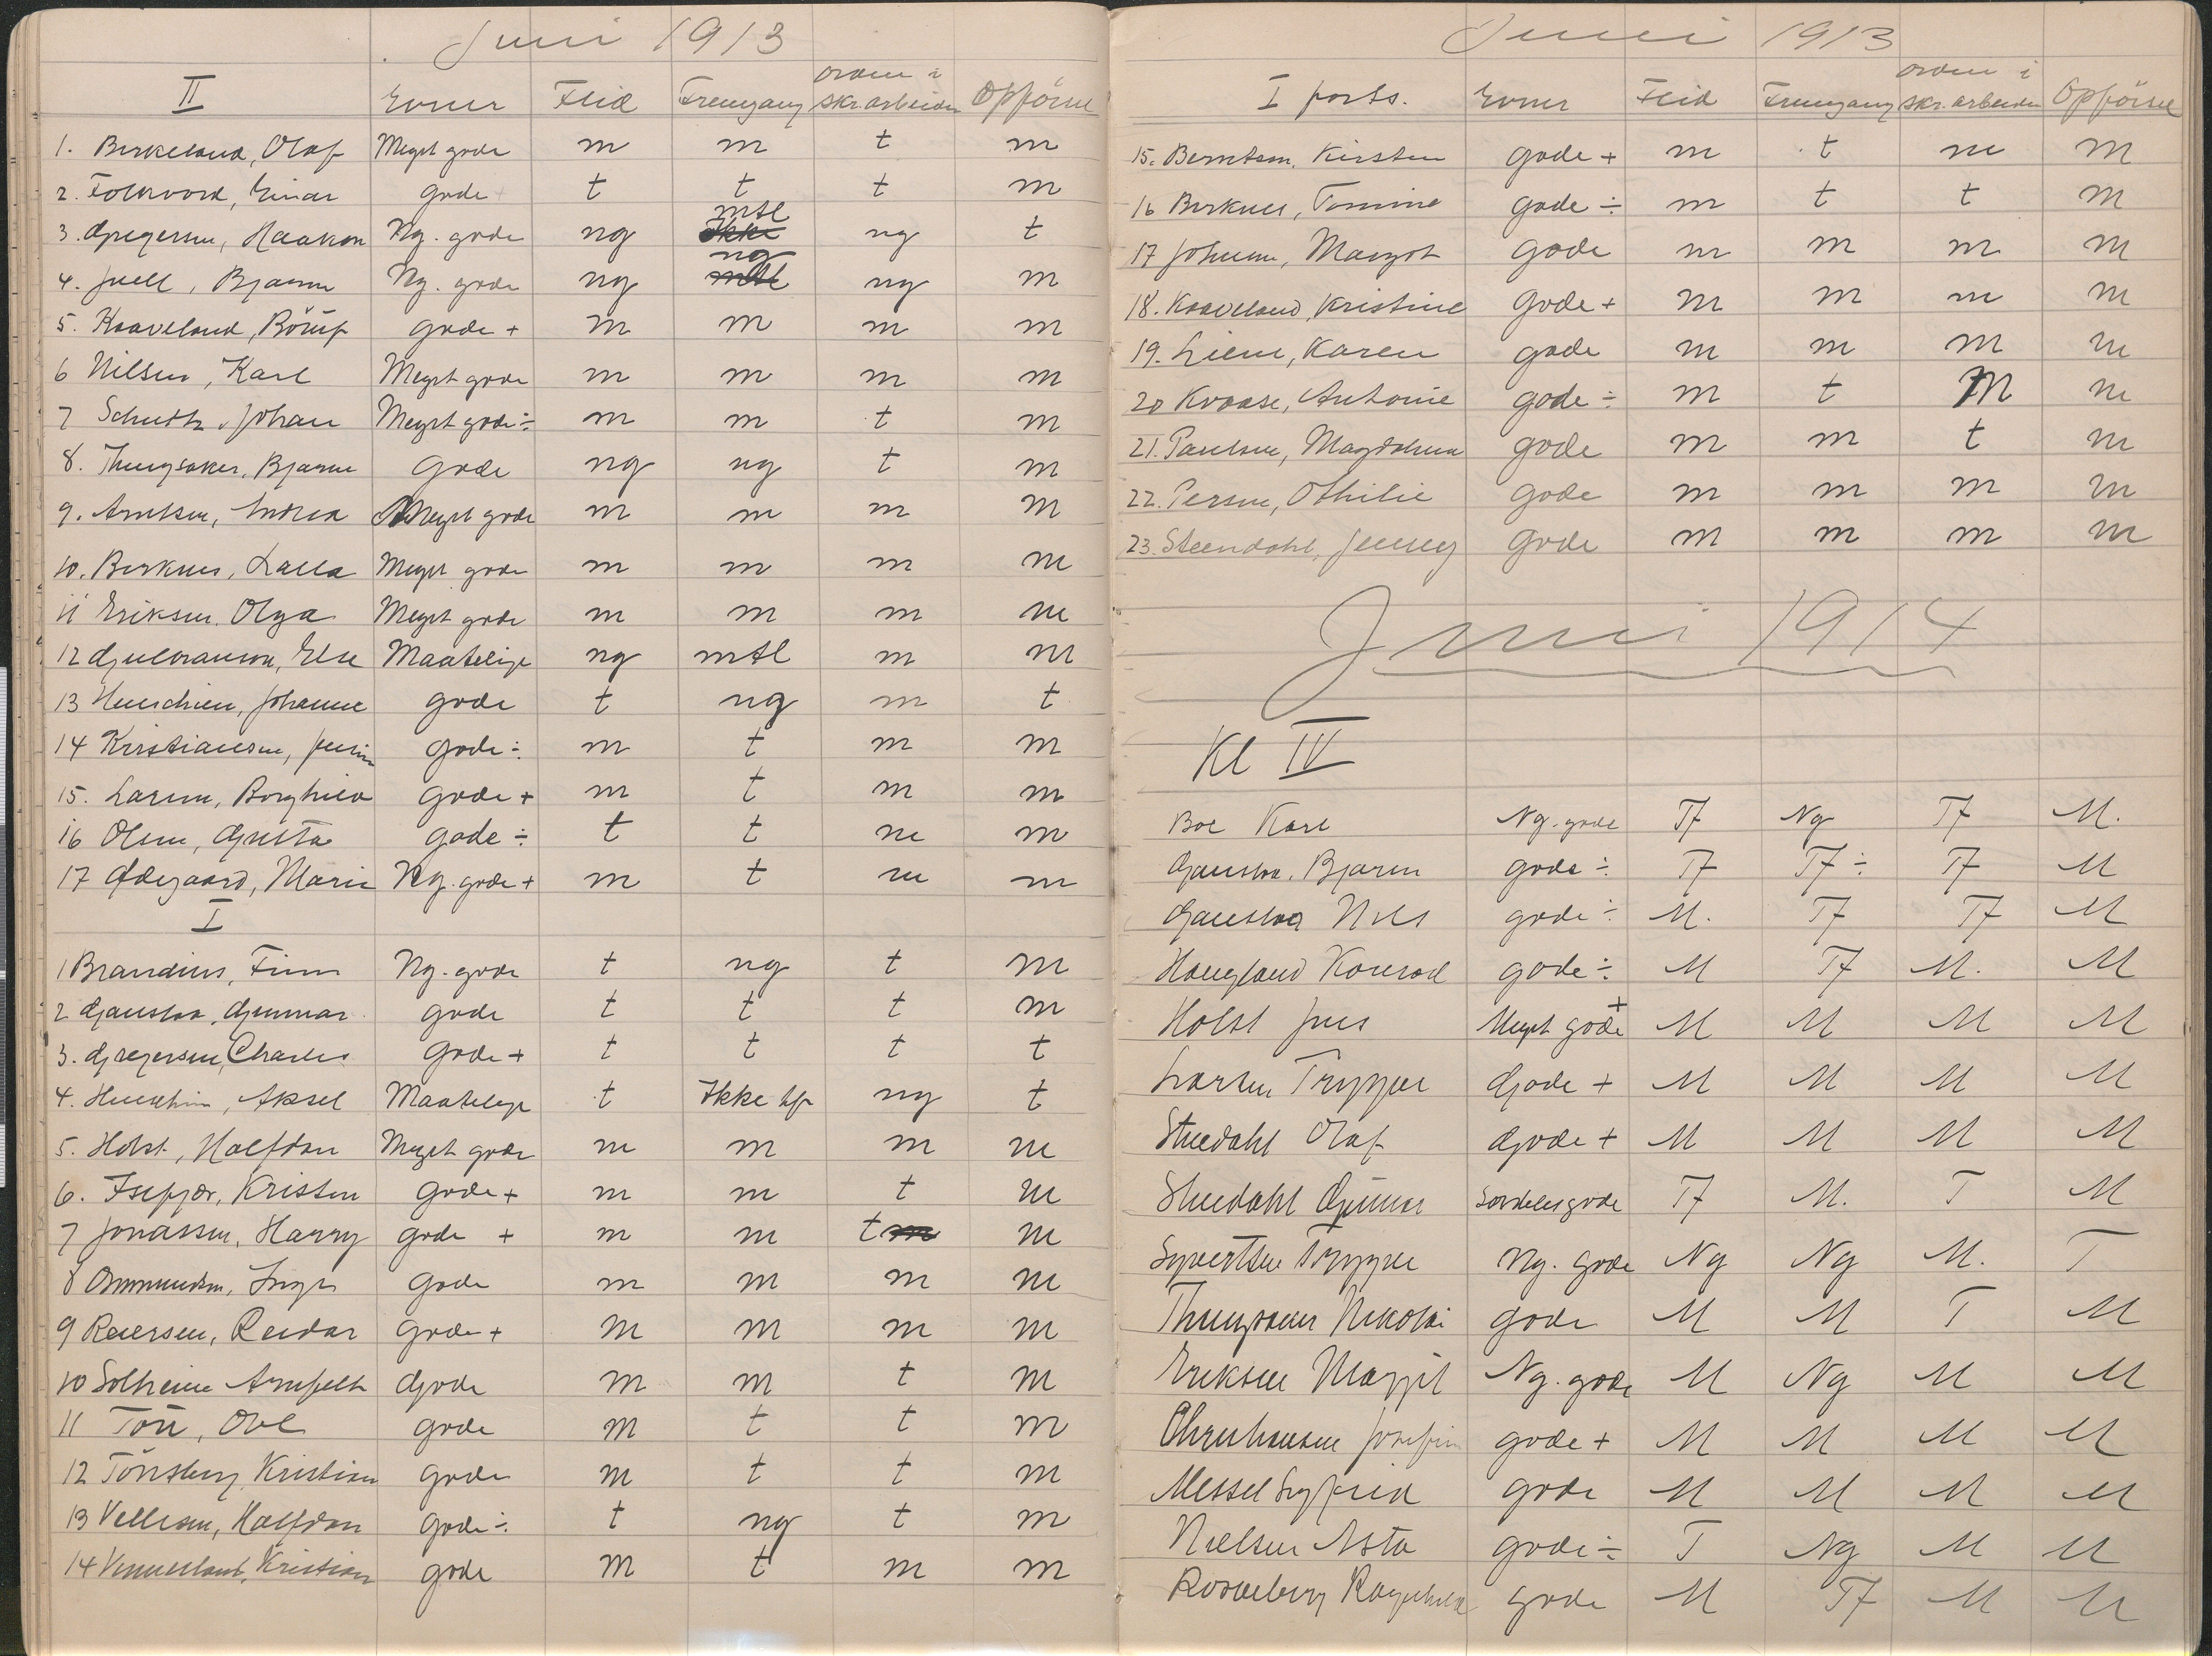 Juni 1913
II Evner Flid Fremgang Orden i skr. arbeider Opførsel
1. Birkeland, Olaf Meget gode m m t m
2. Folkvord, Einar gode t t t m
3. Gregersen, Haakon Ng. gode ng mtl ng t
4. Juell, Bjarne Ng. gode ng ng ng m
5. Kaaveland, Börüf gode + m m m m
6 Nilsen, Karl Meget gode m m m m
7 Schultz, Johan Meget gode ÷ m m t m
8. Thungsaker, Bjarne Gode ng ng t m
9. Arntsen, Andrea Meget gode m m m m
10. Birknes, Lalla Meget gode m m m m
11 Eriksen, Olga Meget gode m m m m
12 Gulbranson, Else Maatelige ng mtl m m
13 Henschien, Johanne gode t ng m t
14 Kristiansen, gode ÷ m t m m
15. Larsen, Borghild gode + m t m m
16 Olsen, Gusta gode ÷ t t m m
17 Ødegaard, Marie Ng. gode + m t m m
I
1 Brandius, Finn Ng. gode t ng t m
2 Gaustaa, Gunnar gode t t t m
3. Gregersen, Charles gode + t t t t
4. Henschien, Aksel Maatelige t Ikke tfr ng t
5. Holst, Halfdan Meget gode m m m m
6. Isefjær, Kristen gode + m m t m
7 Jonassen, Harry gode + m m t m
8 Ommundsen, Inge gode m m m m
9 Reiersen, Reidar gode + m m m m
10 Solheim Arnfelt Gode m m t m
11 Toü, Ove gode m t t m
12 Tönsberg, Kristian gode m t t m
13 Vellesen, Halfdan gode ÷ t ng t m
14 Vennesland, Kristian gode m t m m
Juni 1913
I forts. Evner Flid Fremgang Orden i skr. arbeider Opførsel
15. Berntsen, Kirsten gode + m t m m
16 Birknes, Tomine gode ÷ m t t m
17 Johnsen, Margot gode m m m m
18. Kaaveland, Kristine gode + m m m m
19. Liene, Karen gode m m m m
20 Kvaase, Antonie gode ÷ m t m m
21. Paulsen, Magdalena gode m m t m
22. Persen, Othilie gode m m m m
23. Steendahl, Jenny gode m m m m
Juni 1914
Kl IV
Boe Karl Ng. gode Tf Ng Tf M.
Gaustaa, Bjarne gode ÷ Tf Tf ÷ Tf M
Gaustaa Nils gode ÷ M. Tf Tf M
Haugland Konrad gode ÷ M Tf M. M
Holst Jens Meget gode + M M M M
Larsen Trygve Gode + M M M M
Steedahl Olaf Gode + M M M M
Steedahl Gunnar Særdeles gode Tf M. T M
Syvertsen Trygve Ng. gode Ng Ng M. T
Thungsaker Nikolai gode M M T M
Eriksen Margit Ng. gode M Ng M M
Christiansen Josefine gode + M M M M
Messel Sigfrid gode M M M M
Nielsen Asta gode ÷ T Ng M M
Rosseberg Ragnhild gode M Tf M M